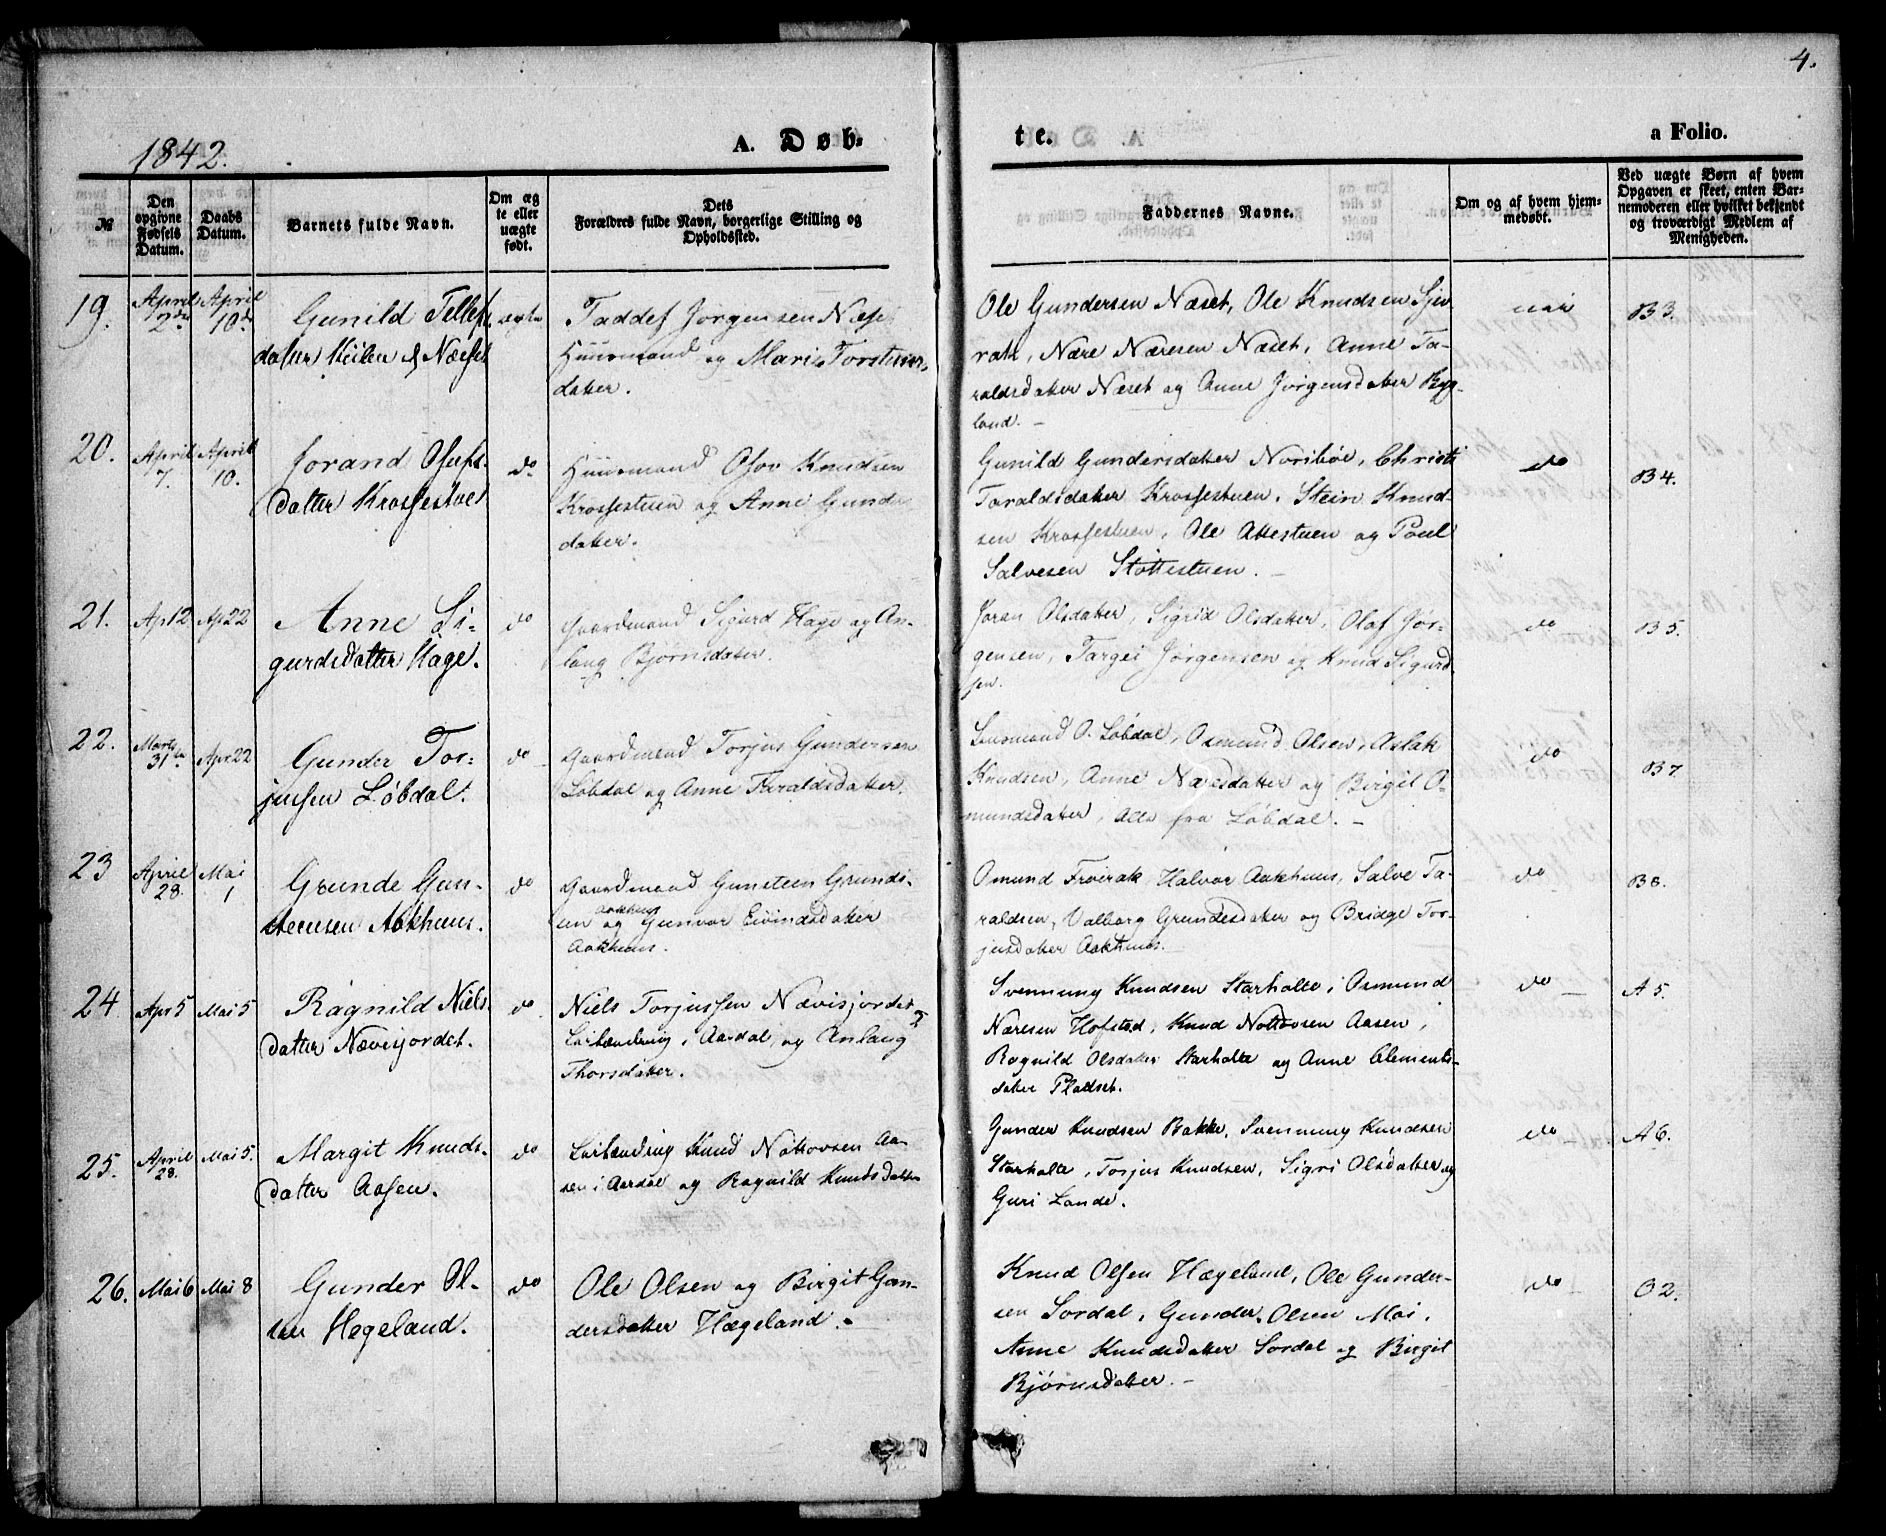 4.
1842.
A. Døb-
te.
a Folio.
№
Den opgivne Fødsels Datum.
Daabs Datum.
Barnets fulde Navn.
Om ægte eller uægte født.
Dets Forældres fulde Navn, borgerlige Stilling og Opholdssted.
Faddernes Navne.
Om og af hvem hjemmedøbt.
Ved uægte Børn af hvem Opgaven er skeet, enten Barnemoderen eller hvilket bekjendt og troværdigt Medlem af Menigheden.
19.
April 2de
April 10de
Gunild Tellefs.
datter Keilen & Næsset
ægte
Taddef Jørgensen Næset
Huusmand og Marie Torstens-
datter.
Ole Gundersen Næset, Ole Knudsen
Nære Næresen Næset, Anne Ta-
raldsdatter Næset og Anne Jørgensdatter Byg-
land. –
nei
B3.
20.
April 7.
April 10.
Jorand Osufs-
datter Krossestuen
do
Huusmand Osov Knudsen
Krossestuen og Anne Gunders
datter.
Gunild Gundersdatter Noribøe, Christi
Taraldsdatter Krossestuen. Stein Knud-
sen Krossestuen, Ole Attestuen og Poul
Salvesen Støttestuen. –
do
B4.
21.
Ap 12
Ap 22
Anne Si-
gurdsdatter Hage.
do
Gaardmand Sigurd Hage og An-
laug Bjørnsdatter.
Joran Olsdatter, Sigrid Olsdatter, Olaf Jør-
gensen, Targei Jørgensen og Knud Sigurd
sen.
do
B5.
22.
Marts 31te
Apr 22
Gunder Tor-
jussen Løbdal.
do
Gaardmand Torjus Gundersen
Løbdal og Anne Taraldsdatter.
Lensmand O. Løbdal, Osmund Olsen, Aslak
Knudsen, Anne Næresdatter og Birgit O-
mundsdatter, Alle fra Løbdal. –
do
B7
23
April 28.
Mai 1
Grunde Gun-
steensen Aakhuus.
do
Gaardmand Gunsteen Grunde-
sen Aakhuus og Gunvor Eivindsdatter
Aakhuus.
Omund Frøirak Halvor Aakhuus, Salve Ta-
raldsen, Valborg Grundesdatter og Bridge Tor-
jusdatter Aakhuus.
do
B8.
24
Apr 5
Mai 5
Ragnild Niels-
datter Nævisjordet.
do
Niels Torjussen Nævisjordet
Leilænding i Aardal og Anlaug
Thorsdatter.
Svennung Knudsen Starholte, Osmund
Næresen Hofstad, Knud Nottovsen Aasen,
Ragnild Olsdatter Starholte og Anne Clements-
datter Pladset.
do
A5.
25.
April 28.
Mai 5.
Margit Knuds-
datter Aasen.
do
Leilænding Knud Nottovsen Aa-
sen i Aardal og Ragnild Knudsdatter
Gunder Knudsen Bakke, Svennung Knudsen
Starholte, Torjus Knudsen, Sigri Olsdatter og
Guri Lande.
do
A6.
26.
Mai 6
Mai 8
Gunder Ol-
sen Hegeland.
do
Ole Olsen og Birgit Gun-
dersdatter Hægeland. –
Knud Olsen Hægeland, Ole Gunder-
sen Sordal, Gunder Olsen Moi,
Anne Knudsdatter Sordal og Birgit
Bjørnsdatter. –
do
O2.